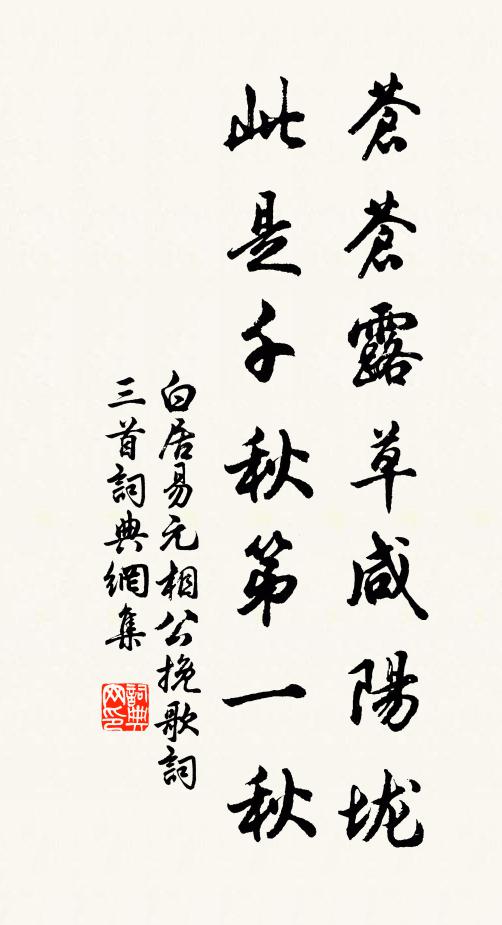 蒼蒼露草咸陽垅
此是千秋第一秋
白居易元相公挽歌詞
三首詞典網集
詞典
网印